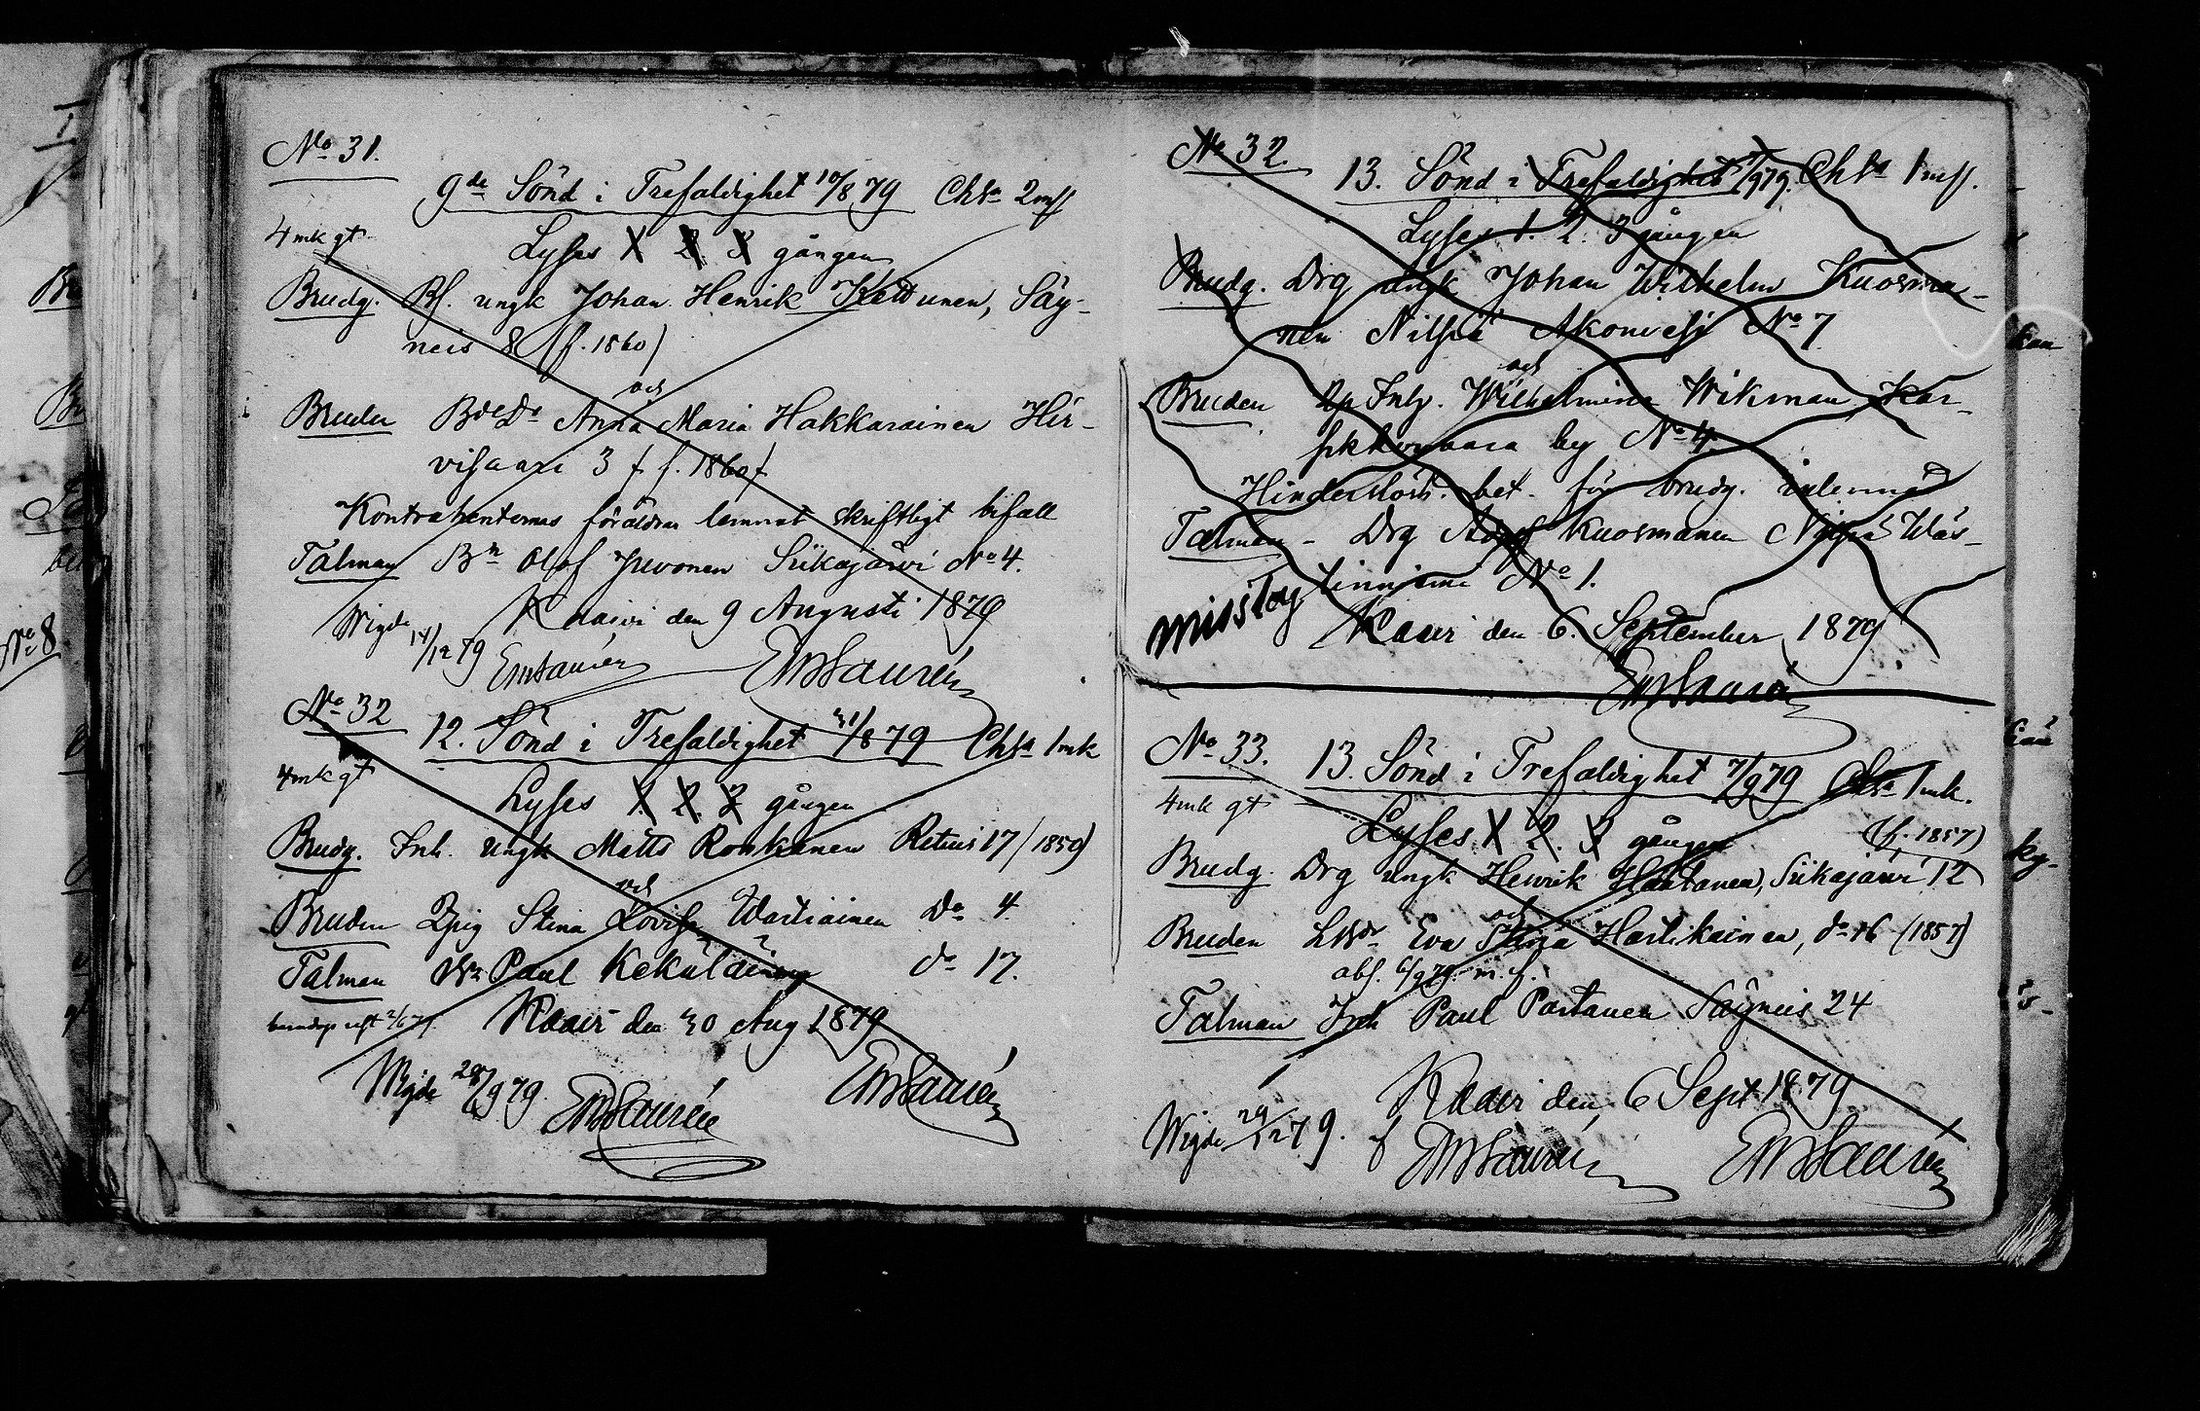 No 31.
9de Sönd i Trefaldighet 10/8 79 Chta 2 mk
4 mk gt
Lyses 1 2 3 gången
Brudg. Bs. ungk Johan Henrik Kettunen, Säy-
neis 8 (f. 1860)
och
Bruden BdeDr Anna Maria Hakkarainen Hir-
visaari 3 (f. 1860)
Kontrahenternes föräldrar lemnat skriftligt bifall
Talman Bn Olof Juvonen Siikajärvi No 4.
Kaavi den 9 Augusti 1879
Wigde 14/12 79 EmSaurén EMSaurén
No 32 12. Sönd i Trefaldighet 31/8 79 Chta 1 mk
4 mk gt
Lyses 1. 2. 3 gången
Brudg. Inh. ungk Matts Ronkanen Retuis 17 (1850)
och
Bruden Stina Lovisa Wartiainen Do 4
Talman Paul Kekäläinen do 17.
Kaavi den 30 Aug 1879
Wigde 28/9 79. EMSaurén EMSaurén
No 32. 13. Sönd i Trefaldighet 7/9 79. Chta 1 mk.
Lyses 1. 2. 3 gången
Brudg. Drg ungk Johan Wilhelm Kuosma-
nen Nilsiä Akonvesi No 7
och
Bruden Wilhelmina Wikman Kar-
by No 4.
Hinderslösh. bet. för brudg.
Talman - Drg Adolf Kuosmanen Nilsiä Wäs-
tinniemi No 1.
misstag Kaavi den 6. September 1879
EMSaurén
No 33. 13. Sönd i Trefaldighet 7/9 79 Chta 1 mk.
4 mk gt
Lyses 1 2. 3 gången (f. 1857)
Brudg. Drg ungk Henrik Hartanen, Siikajärvi 12
och
Bruden Eva Hartikainen, do 16 (1857)
abs. 6/9 79. m. f.
Talman Inh Paul Partanen Säyneis 24
Kaavi den 6 Sept 1879
Wigde 29/12 79. EMSaurén EMSaurén
No 8